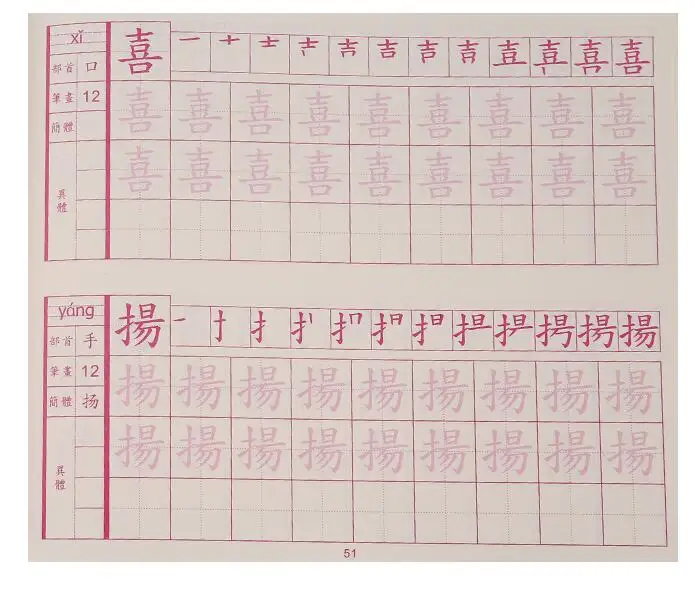 xǐ
部首 口
筆畫 12
簡體
異體
喜 一 十 士 吉 吉 吉 吉 喜
喜 喜 喜 喜 喜 喜 喜 喜 喜
喜 喜 喜 喜 喜 喜 喜 喜 喜
yáng
部首 手
筆畫 12
簡體 扬
異體
揚 一 扌 揚 揚
揚 揚 揚 揚 揚 揚 揚 揚 揚
揚 揚 揚 揚 揚 揚 揚 揚 揚
51